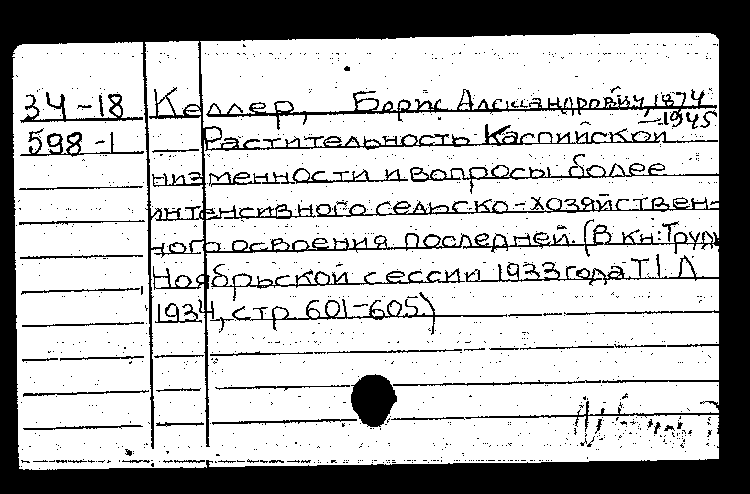 34-18 Келлер, Борис Александрович, 1874
-1945
598-1 Растительность Каспийской
низменности и вопросы более
интенсивного сельско-хозяйствен-
ного освоения последней. (В кн: Труды
Ноябрьской сессии 1933 года Т.I. Л
1934, стр 601-605)